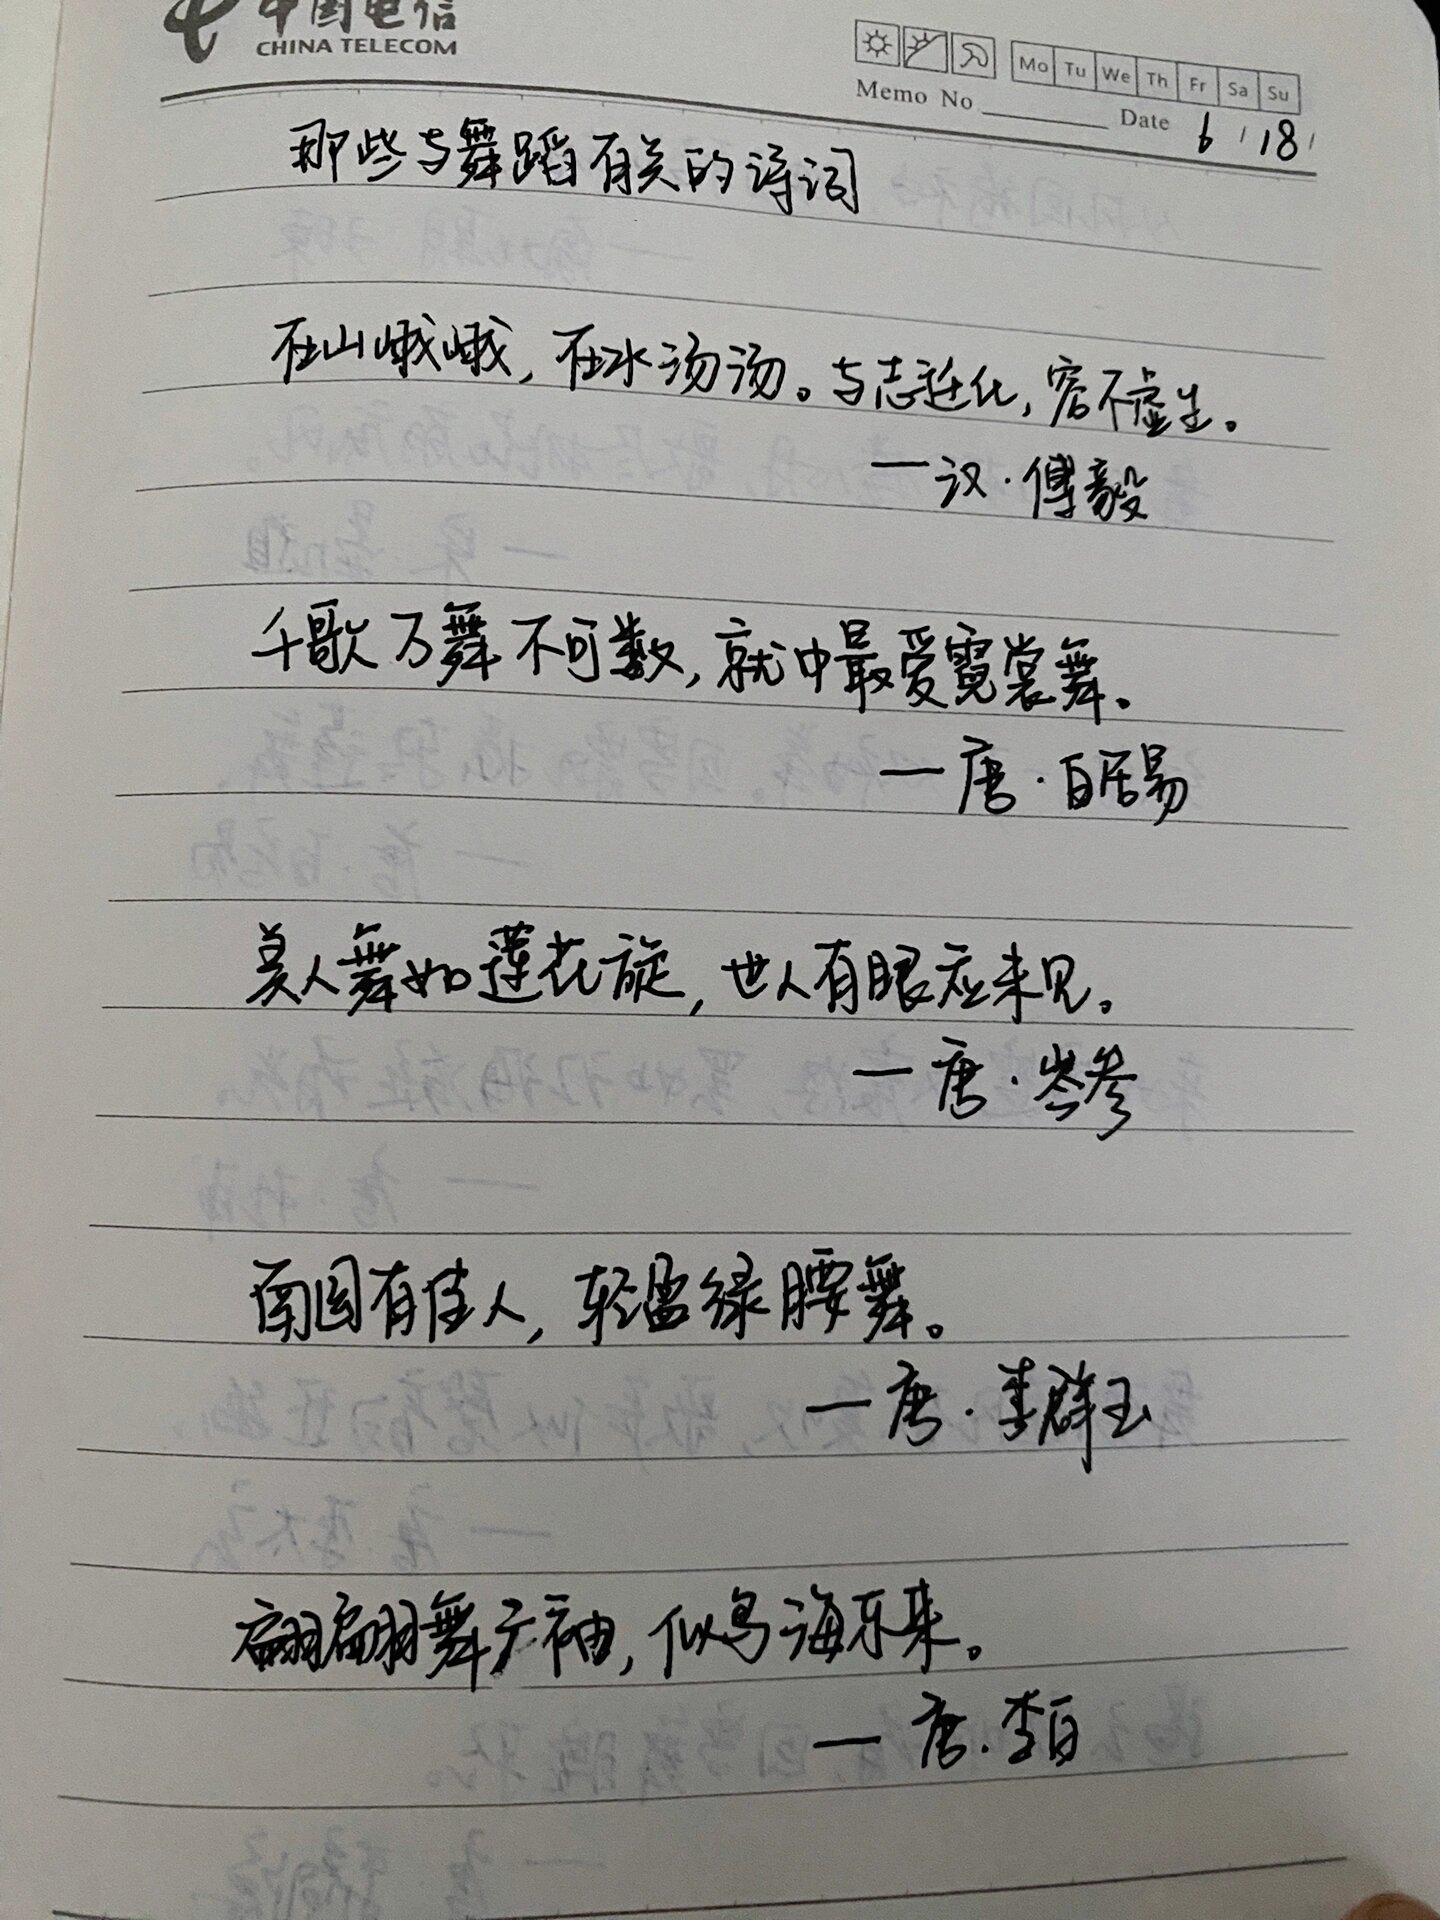 中国电信
CHINA TELECOM
Mo Tu We Th Fr Sa Su
Memo No
Date 6 / 18 /
那些与舞蹈有关的诗词
在山峨峨,在水汤汤。与志迁化,容不虚生。
一汉·傅毅
千歌万舞不可数,就中最爱霓裳舞。
一唐·白居易
美人舞如莲花旋,世人有眼应未见。
一唐·岑参
南国有佳人,轻盈绿腰舞。
一唐·李群玉
翩翩舞广袖,似鸟海东来。
一唐·李白